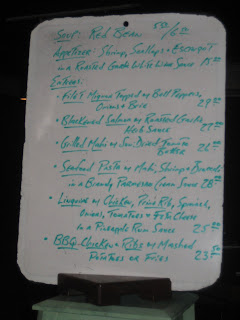 Soup: Red Bean 5.00/6.00
Appetizer: Shrimp, Scallops + Escargot
in a Roasted Garlic White Wine Sauce 15.00
Entrees:
• Filet Mignon Topped w/ Bell Peppers,
Onions + Brie 29.00
• Blackened Salmon w/ Roasted Garlic
Herb Sauce 27.00
• Grilled Mahi w/ Sun Dried Tomato
Butter 26.00
• Seafood Pasta w/ Mahi, Shrimp +
in a Brandy Parmesan Cream Sauce 28.00
• Linguini w/ Chicken, Prime Rib, Spinach,
Onions, Tomatoes + Feta Cheese
in a Pineapple Rum Sauce 25.00
• BBQ Chicken + Ribs w/ Mashed
Potatoes or Fries 23.50